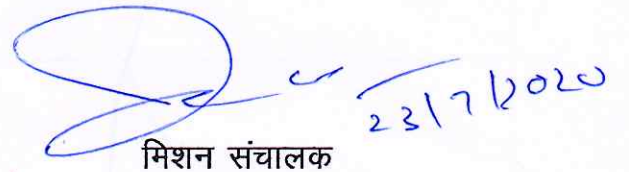 23/7/2020
मिशन संचालक